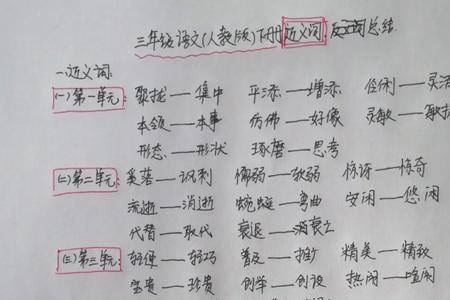 三年级语文(人教版)下册近义词,反义词总结
一.近义词:
(一)第一单元: 聚拢——集中 平添——增添 伶俐——灵活
本领——本事 仿佛——好像 灵敏——敏捷
形态——形状 琢磨——思考
(二)第二单元: 奚落——讽刺 懦弱——软弱 惊讶——惊奇
流逝——消逝 蜿蜒——弯曲 安闲——悠闲
代替——取代 衰退——消衰亡
(三)第三单元: 轻便——轻巧 普及——推广 精美——精致
宝贵——珍贵 创举——创设 热闹——喧闹